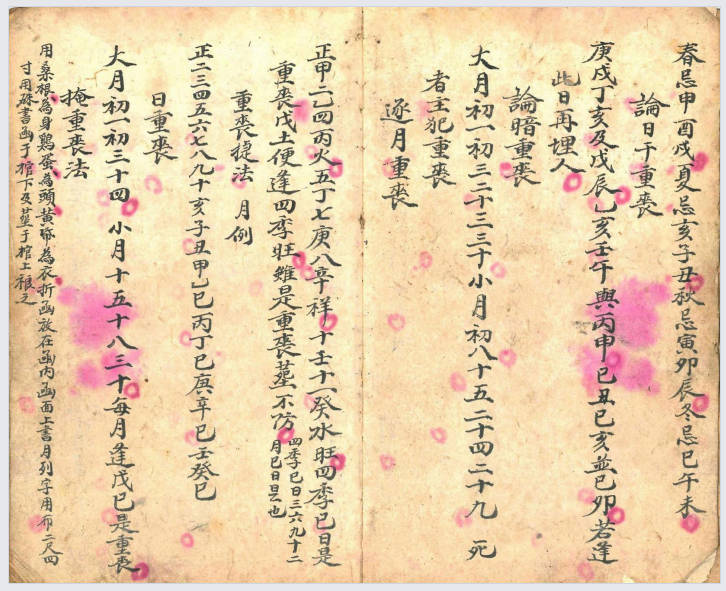 春忌申酉戌夏忌亥子丑秋忌寅卯辰冬忌巳午未
論日干重喪
庚戌丁亥及戊辰乙亥壬午與丙申巳丑巳亥並巳卯若逢
此日再埋人
論暗重喪
大月初一初三二十三三十小月初八十五二十四二十九 死
者主犯重喪
逐月重喪
正甲二乙四丙火五丁七庚八辛祥十壬十一癸水旺四季巳日是
重喪戊土便逢四季旺雖是重喪葬不仿
四季巳日三六九十二
月巳日是也
重喪捷法 月例
正二三四五六七八九十亥子丑甲乙巳丙丁巳庚辛巳壬癸巳
日重喪
大月初一初三十四 小月十五十八三十每月逢戊巳是重喪
掩重喪法
用桑根為身鷄蛋為頭黄紙為衣折函放在函内函面上書月列字用布二尺四
寸用硃書函于棺下及葬于棺上